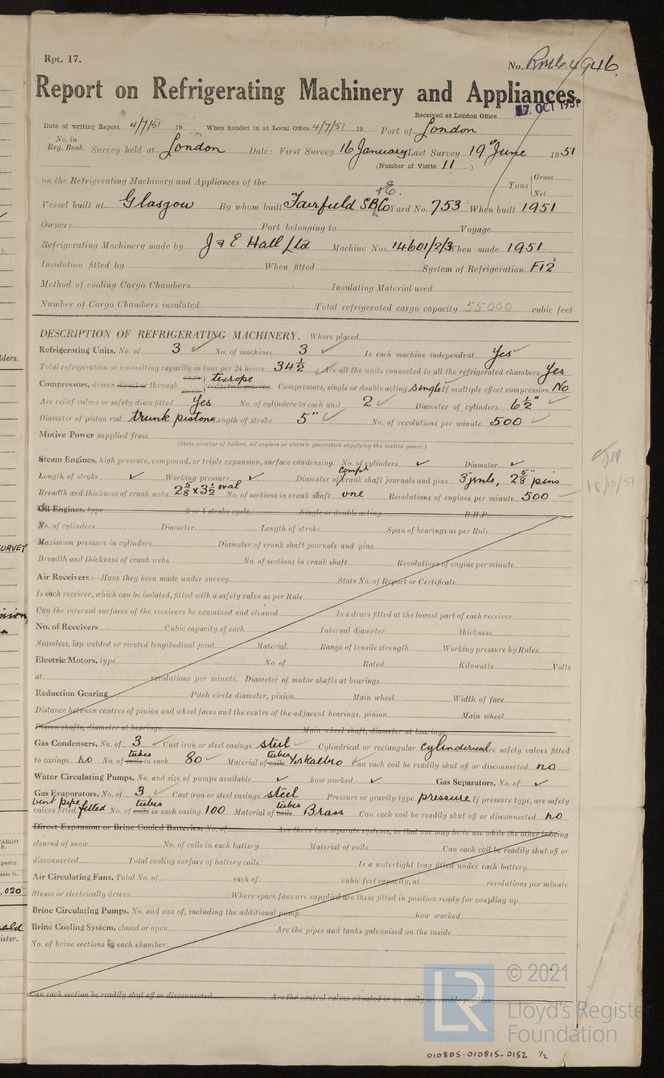 Rpt. 17.
No. Rmc 64946.
Report on Refrigerating Machinery and Appliances.
Received at London Office 17. OCT 1951
Date of writing Report 4/7/51 19 When handed in at Local Office 4/7/51 19 Port of London
No. in Reg. Book. Survey held at London Date: First Survey 16 January Last Survey 19th June 1951
(Number of Visits 11 )
on the Refrigerating Machinery and Appliances of the Tons { Gross Net
Vessel built at Glasgow By whom built Fairfield S.B. & E. Co Yard No. 753 When built 1951
Owners Port belonging to Voyage
Refrigerating Machinery made by J & E Hall Ltd Machine Nos. 14601/2/3 When made 1951
Insulation fitted by When fitted System of Refrigeration F12
Method of cooling Cargo Chambers Insulating Material used
Number of Cargo Chambers insulated Total refrigerated cargo capacity 55000 cubic feet
DESCRIPTION OF REFRIGERATING MACHINERY. Where placed
Refrigerating Units, No. of 3 ✓ No. of machines 3 ✓ Is each machine independent Yes
Total refrigeration or ice-melting capacity in tons per 24 hours 34½ ✓ Are all the units connected to all the refrigerated chambers Yes
Compressors, driven direct or through texrope Compressors, single or double acting single If multiple effect compression No
Are relief valves or safety discs fitted Yes No. of cylinders to each unit 2 Diameter of cylinders 6½"
Diameter of piston rod trunk pistons Length of stroke 5" ✓ No. of revolutions per minute 500
Motive Power supplied from
(State number of boilers, oil engines or electric generators supplying the motive power.)
Steam Engines, high pressure, compound, or triple expansion, surface condensing. No. of cylinders ✓ Diameter ✓
Length of stroke ✓ Working pressure ✓ Diameter of compr crank shaft journals and pins 3" jnls, 2⅝" pins
Breadth and thickness of crank webs 2⅝ x 3½ oval No. of sections in crank shaft one Revolutions of engines per minute 500
Oil Engines, type 2 or 4 stroke cycle Single or double acting B.H.P.
No. of cylinders Diameter Length of stroke Span of bearings as per Rule
Maximum pressure in cylinders Diameter of crank shaft journals and pins
Breadth and thickness of crank webs No. of sections in crank shaft Revolutions of engine per minute
Air Receivers:—Have they been made under survey State No. of Report or Certificate
Is each receiver, which can be isolated, fitted with a safety valve as per Rule
Can the internal surfaces of the receivers be examined and cleaned Is a drain fitted at the lowest part of each receiver
No. of Receivers Cubic capacity of each Internal diameter thickness
Seamless, lap welded or riveted longitudinal joint Material Range of tensile strength Working pressure by Rules
Electric Motors, type No. of Rated Kilowatts Volts
at revolutions per minute. Diameter of motor shafts at bearings
Reduction Gearing Pitch circle diameter, pinion Main wheel Width of face
Distance between centres of pinion and wheel faces and the centre of the adjacent bearings, pinion Main wheel
Pinion shafts, diameter at bearings Main wheel shaft, diameter at bearings
Gas Condensers, No. of 3 ✓ Cast iron or steel casings steel Cylindrical or rectangular cylindrical safety valves fitted
to casings no No. of coils tubes in each 80 ✓ Material of coils tubes Yorkalbro Can each coil be readily shut off or disconnected no
Water Circulating Pumps, No. and size of pumps available ✓ how worked ✓ Gas Separators, No. of ✓
Gas Evaporators, No. of 3 ✓ Cast iron or steel casings steel Pressure or gravity type pressure If pressure type, are safety
valves fitted vent pipe fitted No. of coils tubes in each casing 100 Material of coils tubes Brass Can each coil be readily shut off or disconnected no
Direct Expansion or Brine Cooled Batteries, No. of Are there two separate systems, so that one may be in use while the other is being
cleared of snow No. of coils in each battery Material of coils Can each coil be readily shut off or
disconnected Total cooling surface of battery coils Is a watertight tray fitted under each battery
Air Circulating Fans, Total No. of each of cubic feet capacity, at revolutions per minute
Steam or electrically driven Where spare fans are supplied are these fitted in position ready for coupling up
Brine Circulating Pumps, No. and size of, including the additional pump how worked
Brine Cooling System, closed or open Are the pipes and tanks galvanised on the inside
No. of brine sections in each chamber
Can each section be readily shut off or disconnected Are the control valves situated in an easily accessible position
© 2021
LR
Lloyd's Register
Foundation
010805-010815-0152 ½